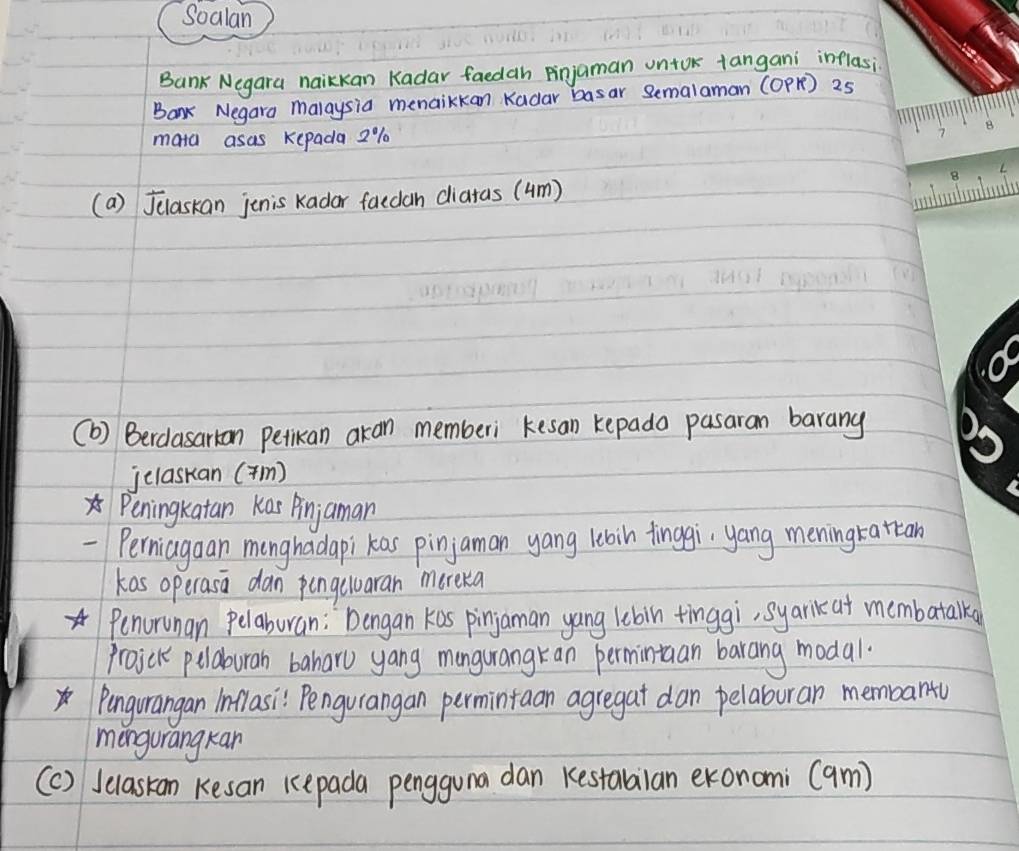 Soalan
Bank Negara naikkan Kadar faedah Pinjaman untuk tangani inflasi.
Bank Negara Malaysia menaikkan Kadar basar semalaman (OPR) 25
mata asas kepada 2%
(a) Jelaskan jenis kadar faedah diatas (4m)
(b) Berdasarkan petikan akan memberi kesan kepada pasaran barang
jelaskan (7m)
☆ Peningkatan kos Pinjaman
- Perniagaan menghadapi kos pinjaman yang lebih tinggi, yang meningkatkan
kos operasi dan pengeluaran mereka
☆ Penurunan Pelaburan: Dengan kos pinjaman yang lebih tinggi, syarikat membatalka
Projek pelaburan baharu yang mengurangkan permintaan barang modal.
☆ Pengurangan Inflasi: Pengurangan permintaan agregat dan pelaburan membantu
mengurangkan
(c) Jelaskan kesan kepada pengguna dan kestabilan ekonomi (9m)
7 8
8